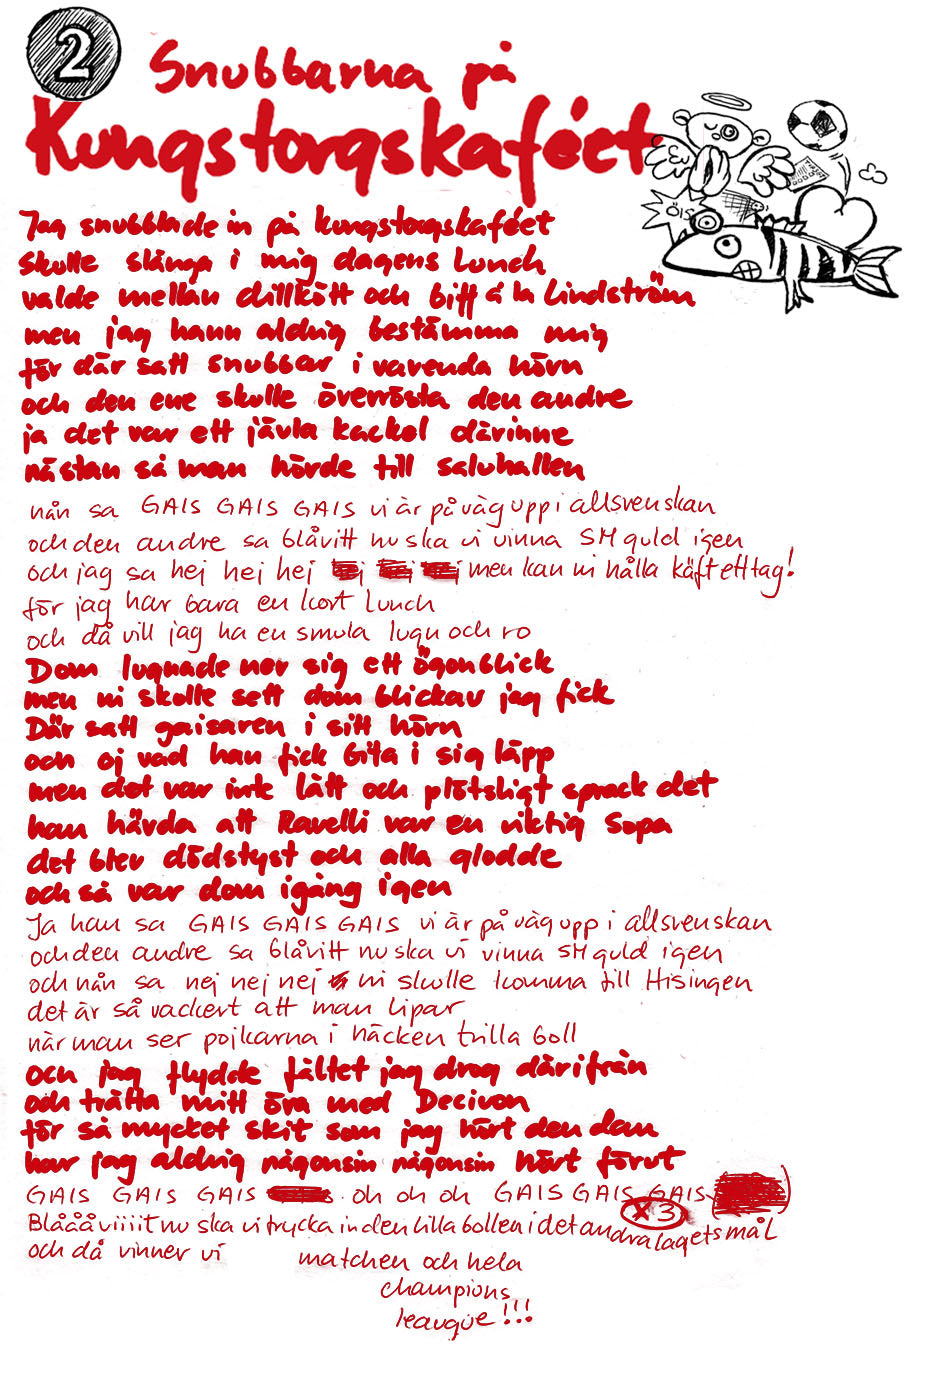 2
Snubbarna på
Kungstorgskaféet
ÖIS
Jag snubblade in på kungstorgskaféet
skulle slänga i mig dagens lunch
valde mellan dillkött och biff á la Lindström
men jag hann aldrig bestämma mig
för där satt snubbar i varenda hörn
och den ene skulle överrösta den andre
ja det var ett jävla kackel därinne
nästan så man hörde till saluhallen
nån sa GAIS GAIS GAIS vi är på väg upp i allsvenskan
och den andre sa blåvitt nu ska vi vinna SM guld igen
och jag sa hej hej hej men kan ni hålla käft ett tag!
för jag har bara en kort lunch
och då vill jag ha en smula lugn och ro
Dom lugnade ner sig ett ögonblick
men ni skulle sett dom blickar jag fick
Där satt gaisaren i sitt hörn
och oj vad han fick bita i sig läpp
men det var inte lätt och plötsligt sprack det
han hävda att Ravelli var en viktig sopa
det blev dödstyst och alla glodde
och så var dom igång igen
Ja han sa GAIS GAIS GAIS vi är på väg upp i allsvenskan
och den andre sa blåvitt nu ska vi vinna SM guld igen
och nån sa nej nej nej ni skulle komma till Hisingen
det är så vackert att man lipar
när man ser pojkarna i Häcken trilla boll
och jag flydde fältet jag drog därifrån
och tvätta mitt öra med Decivon
för så mycket skit som jag hört den dan
har jag aldrig någonsin någonsin hört förut
GAIS GAIS GAIS oh oh oh GAIS GAIS GAIS
x 3
Blåååviiiit nu ska vi trycka in den lilla bollen i det andra lagets mål
och då vinner vi matchen och hela
champions
leauge!!!